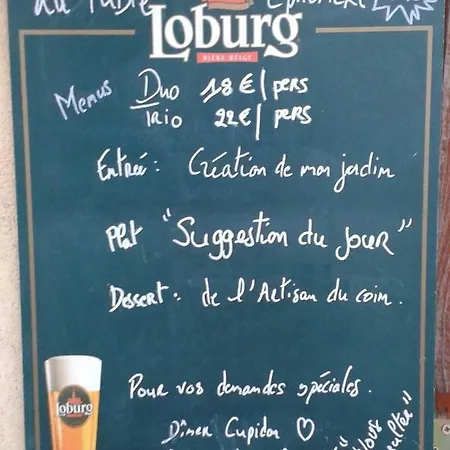 au
Loburg
BIÈRE BELGE
Menus Duo 18€/pers
Trio 22€/pers
Entrée : Création de mon jardin
Plat "Suggestion du jour"
Dessert : de l'Artisan du coin.
Pour vos demandes spéciales.
Loburg
Dîner Cupidon ♡
Nous